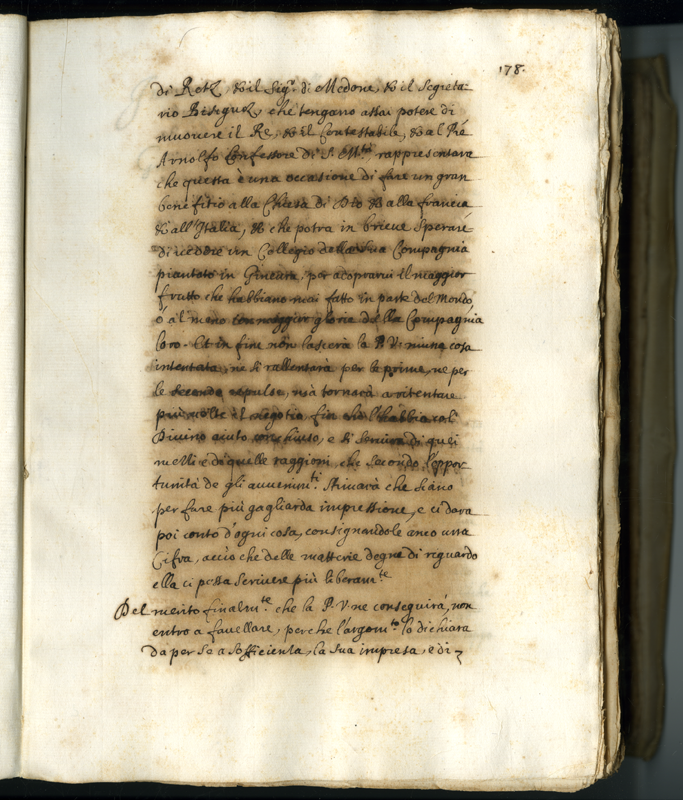 178.
di Retz, et il Sigr. di Medone, et il Segreta-
rio Bisignolz, che tengano assai potere di
muovere il Re, et il Contestabile, et al Pre
Arnolfo Confessore di S. Mtà, rappresentare
che questa è una occasione di fare un gran
benefitio alla Chiesa di Dio et alla francia
et all'Italia, et che potrà in brieve sperare
di vedere un Collegio della sua Compagnia
piantato in Ginevra, per acoprarvi il maggior
frutto che habbiano mai fatto in parte del Mondo,
ò al meno con maggior gloria della Compagnia
loro. Et in fine non lascerà la P. V. niuna cosa
intentata, ne si rallentarà per le prime, ne per
le seconde repulse, mà tornarà à ritentare
più volte il negotio, fin che l'habbia col
Divino aiuto conchiuso, e si servirà di quei
mezzi e di quelle raggioni, che secondo l'oppor
tunità de gli avvenimti. stimarà che siano
per fare più gagliarda impressione, e ci darà
poi conto d'ogni cosa, consignandole anco una
Cifra, acciò che delle matterie degne di riguardo
ella ci possa scrivere più liberamte.
Del merito finalmte. che la P. V. ne conseguirà, non
entro a favellare, perche l'argomto. lo dichiara
da per se a sofficienza, la sua impresa, e di